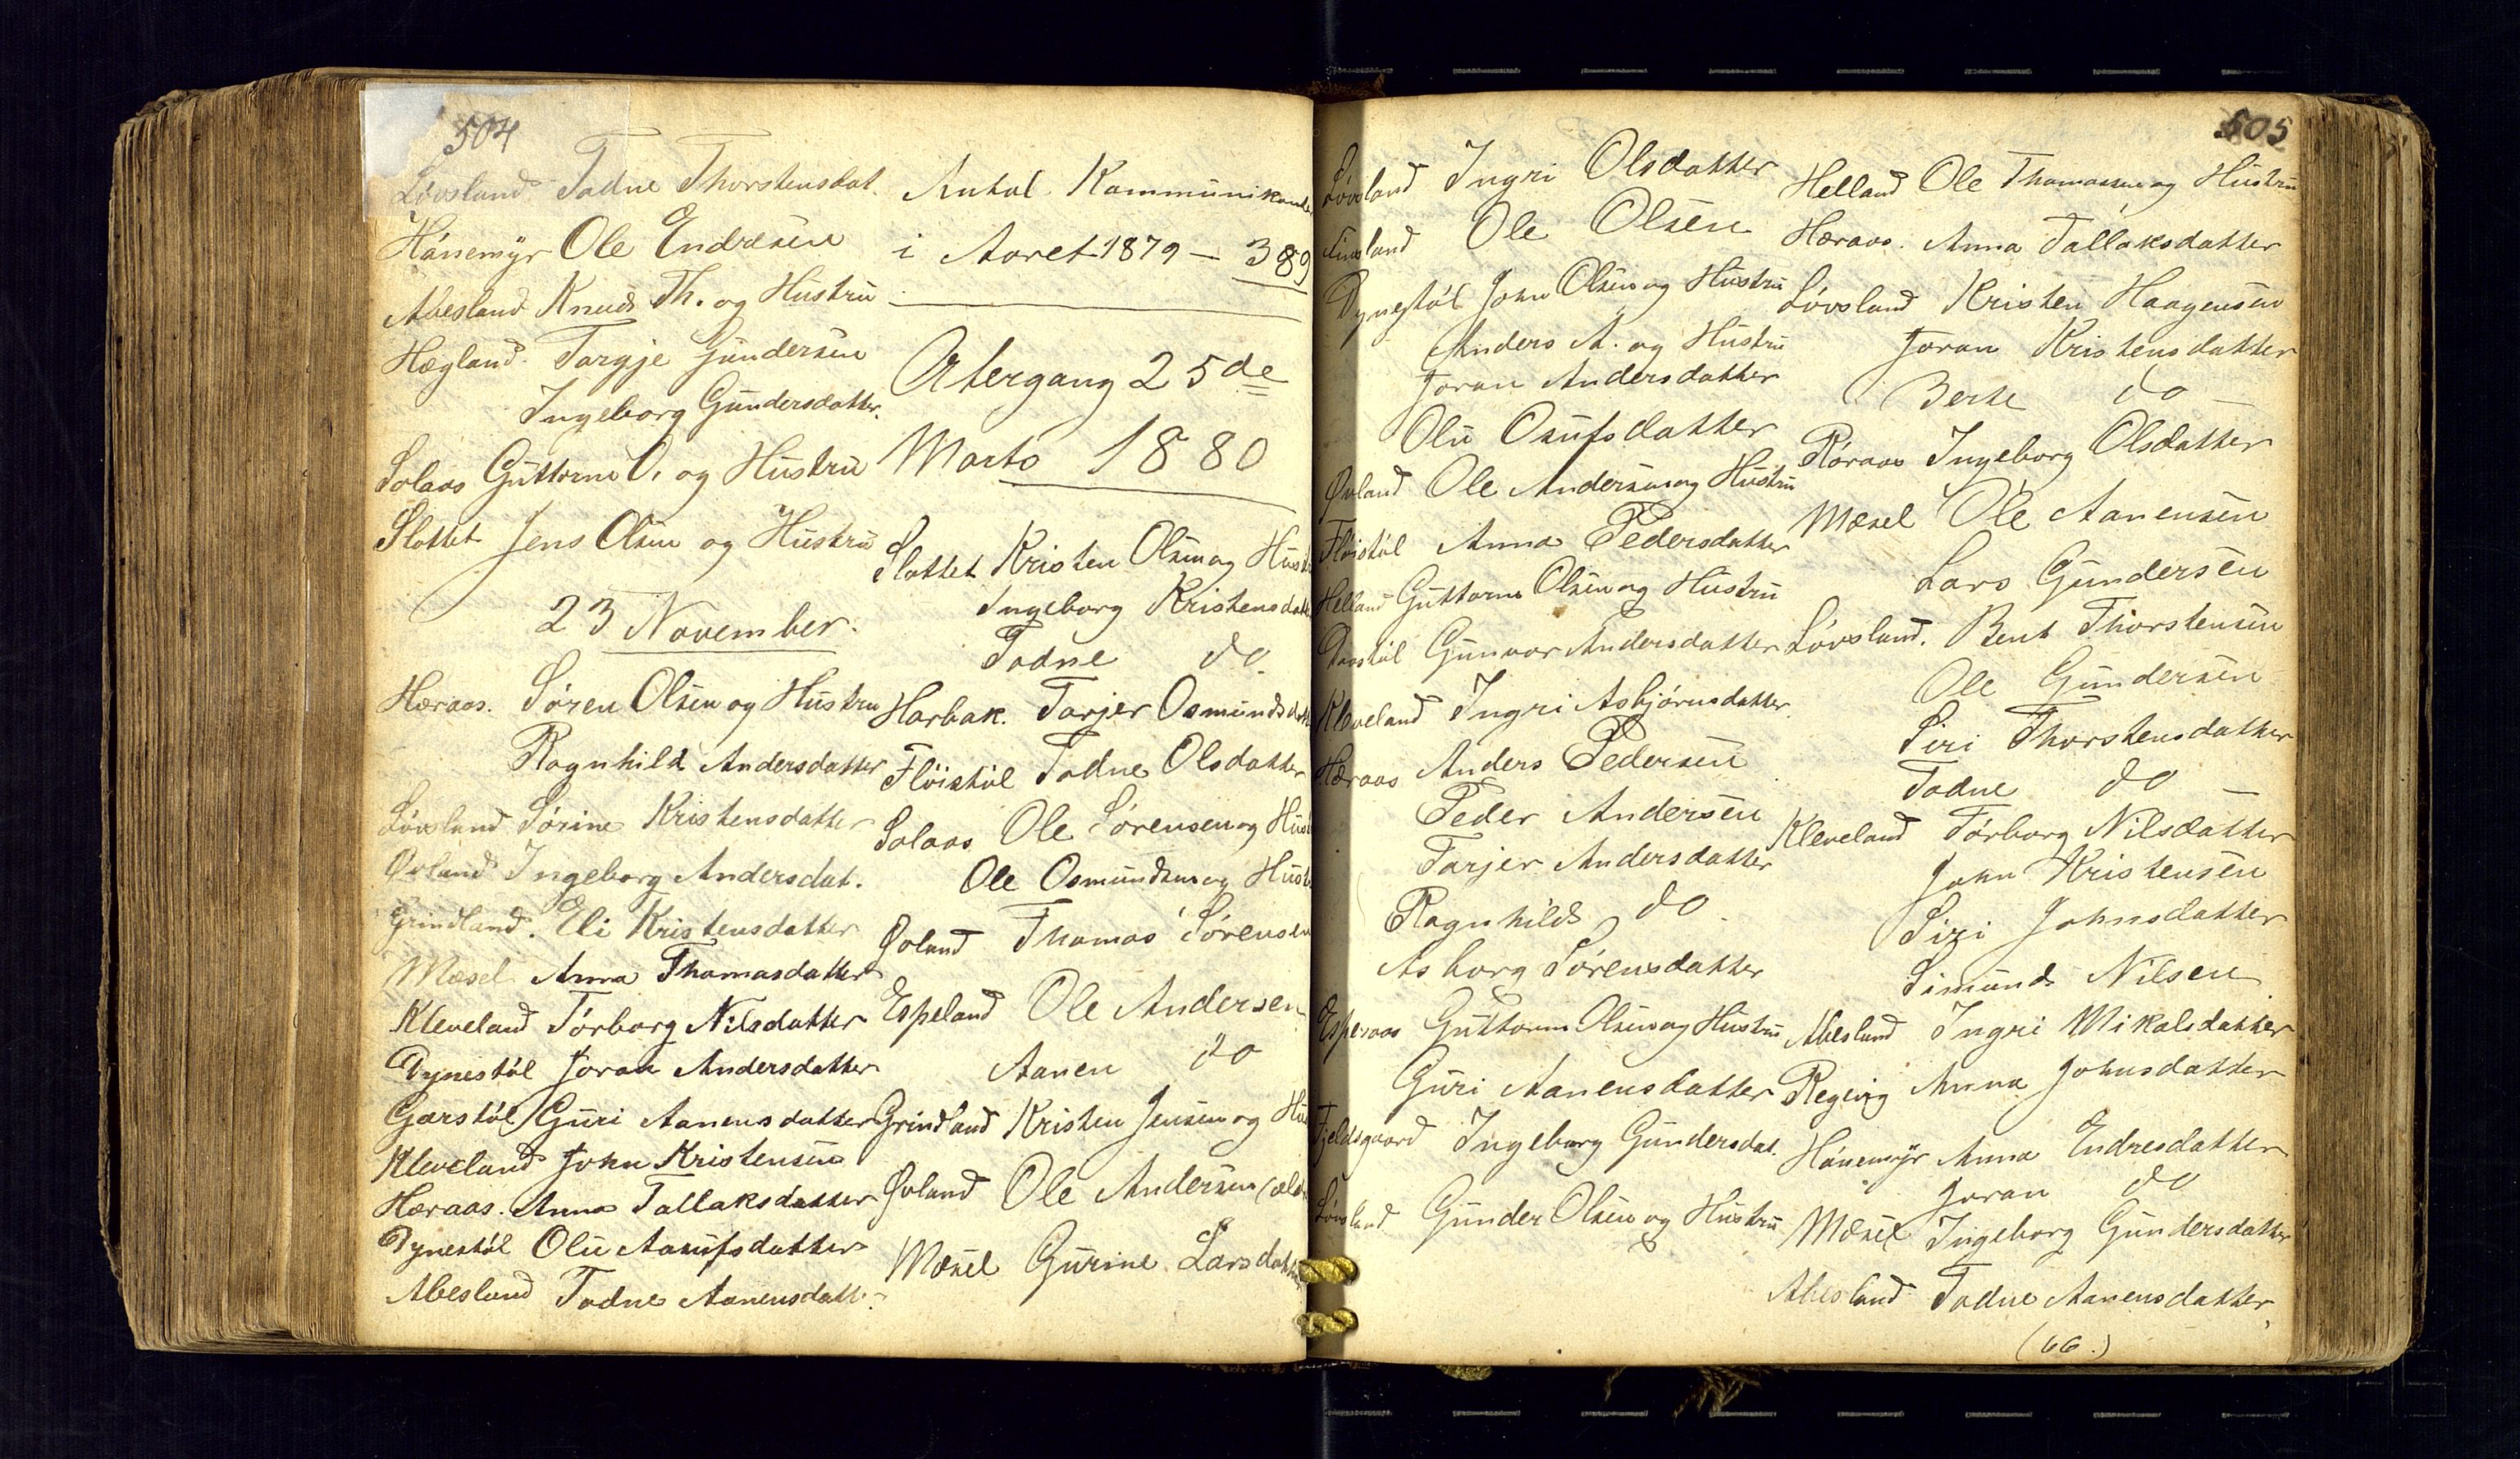 504
Lövsland Todne Thorstensdat.
Hánemÿr Ole Endresen
Abesland Knud Th. og Hustru
Hægland. Targje Gundersen
Ingeborg Gundersdatter.
Solaas Guttorm O. og Hustru
Slottet Jens Olsen og Hustru
23 November.
Høraas. Sören Olsen og Hustru
Ragnhild Andersdatter
Lövsland Sörine Kristensdatter
Øvland Ingeborg Andersdat.
Grindland. Eli Kristensdatter
Mæsel Anna Thomasdatter
Kleveland Törborg Nilsdatter
Dynestöl Joran Andersdatter
Gærstöl Guri Aanensdatter
Kleveland John Kristensen
Høraas. Anna Tallaksdatter
Dynestöl Olu Aasufsdatter
Abesland Todne Aanensdatt.
Antal Kommunikanter
i Aaret 1879 — 389
Altergang 25de
Marts 1880
Slottet Kristen Olsen og Hustr
Ingeborg Kristensdatt
Todne do
Harbak. Tarjer Osmundsdatt
Flöistöl Todne Olsdatter
Solaas Ole Sörensen og Hust
Ole Osmundsen og Hust
Øvland Thomas Sörensen
Espeland Ole Andersen
Aanen do
Grindland Kristen Jensen og Hu
Øvland Ole Andersen (æld
Mæsel Gurine Larsdatter
505
Lövsland Ingri Olsdatter
Finsland Ole Olsen
Dynestöl John Olsen og Hustru
Anders A. og Hustru
Joran Andersdatter
Olu Osufsdatter
Øvland Ole Andersen og Hustru
Flöistöl Anna Pedersdatter
Helland Guttorm Olsen og Hustru
Gunvor Andersdatter
Kleveland Ingri Asbjörnsdatter
Høraas Anders Pedersen
Peder Andersen
Tarjer Andersdatter
Ragnhild do
Asborg Sörensdatter
Esperaas Guttorm Olsen og Hustru
Guri Aanensdatter
Fjeldsgaard Ingeborg Gundersdat.
Lövsland Gunder Olsen og Hustru
Helland Ole Thomassen og Hustru
Høraas. Anna Tallaksdatter
Lövsland Kristen Haagensen
Joran Kristensdatter
Berte do —
Röraas Ingeborg Olsdatter
Mæsel Ole Aanensen
Lars Gundersen
Lövsland. Bent Thorstensen
Ole Gundersen
Siri Thorstensdatter
Todne do —
Kleveland Törborg Nilsdatter
John Kristensen
Siri Johnsdatter
Simund Nilsen
Abesland Ingri Mikalsdatter
Regevig Anna Johnsdatter
Hánemÿr Anna Endresdatter
Joran do
Mæsel Ingeborg Gundersdatter
Abesland Todne Aanensdatter
(66.)